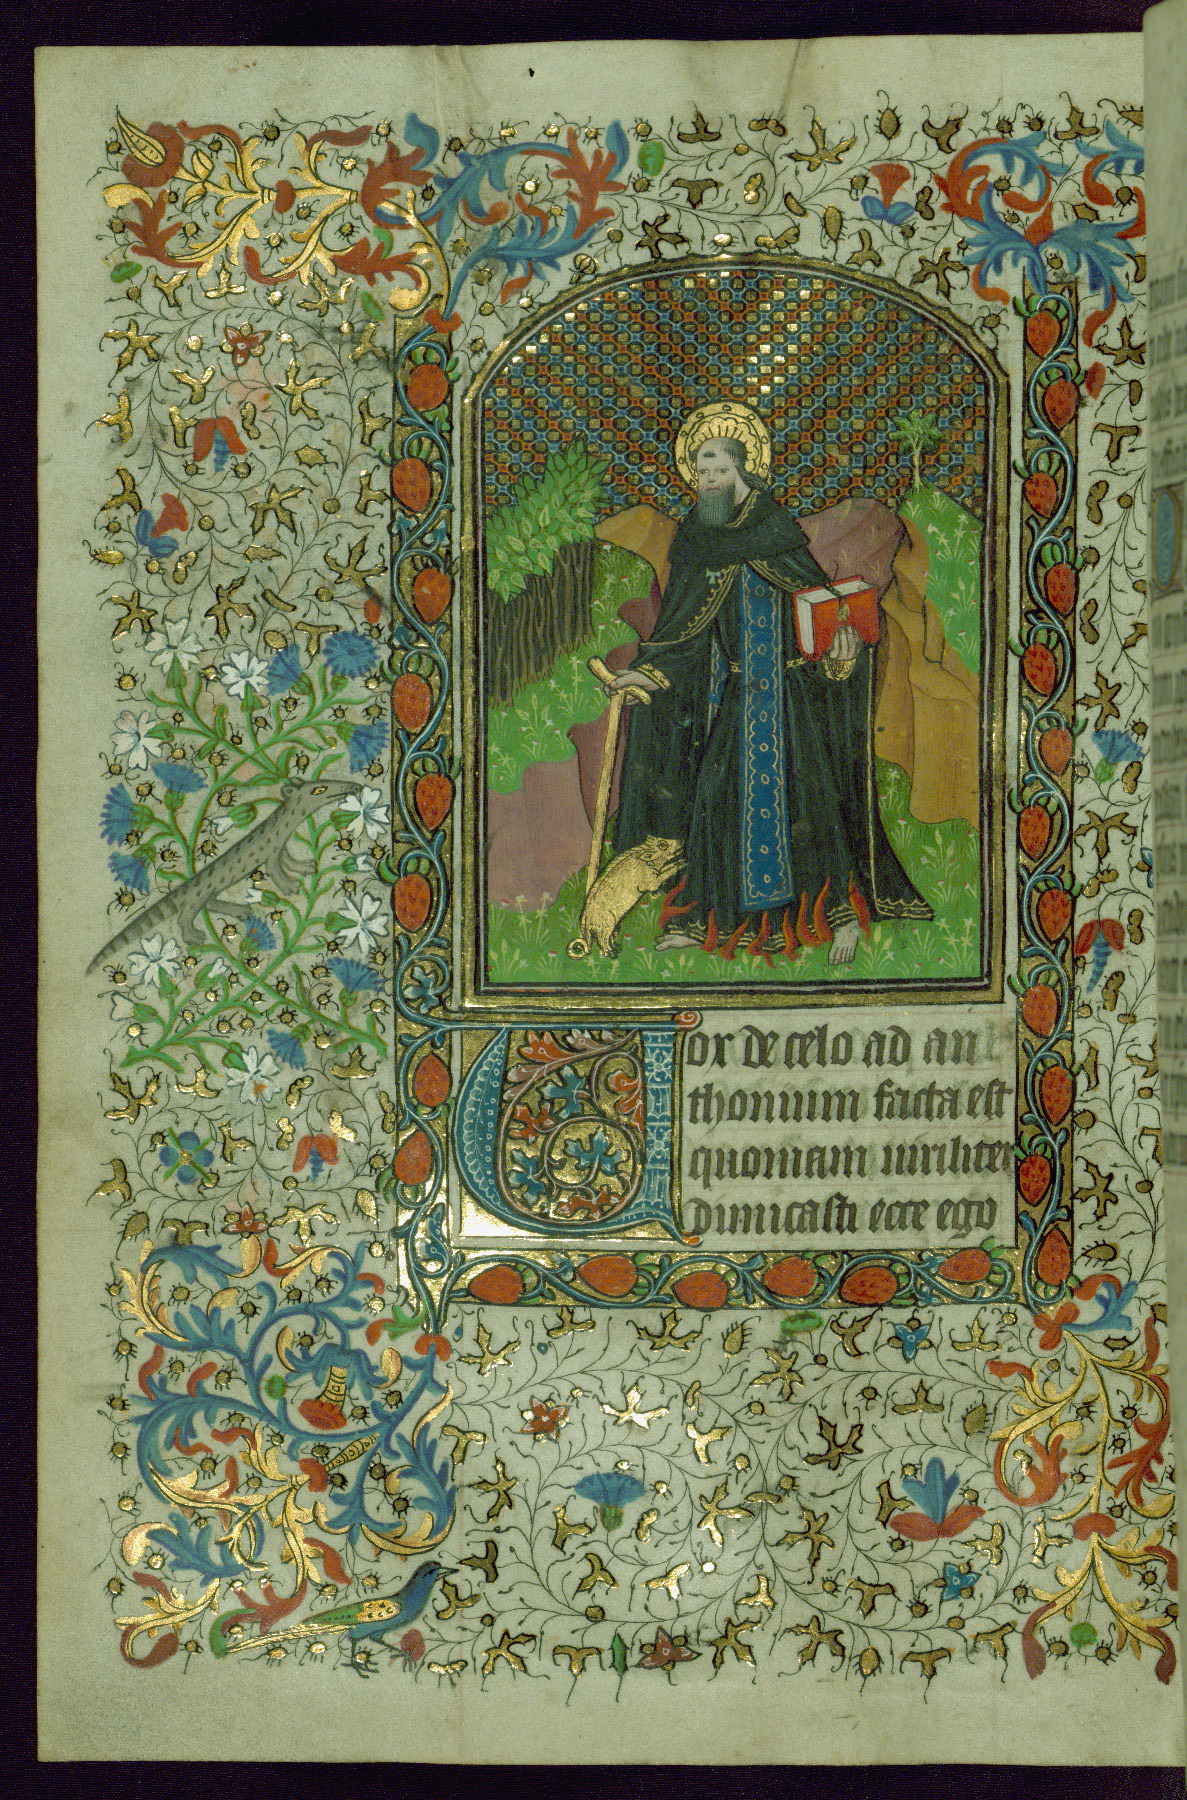 Vox de celo ad an
thonium facta est
quoniam uiriliter
dimicasti ecce ego